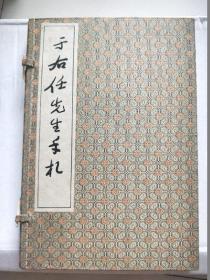 于右任先生手札